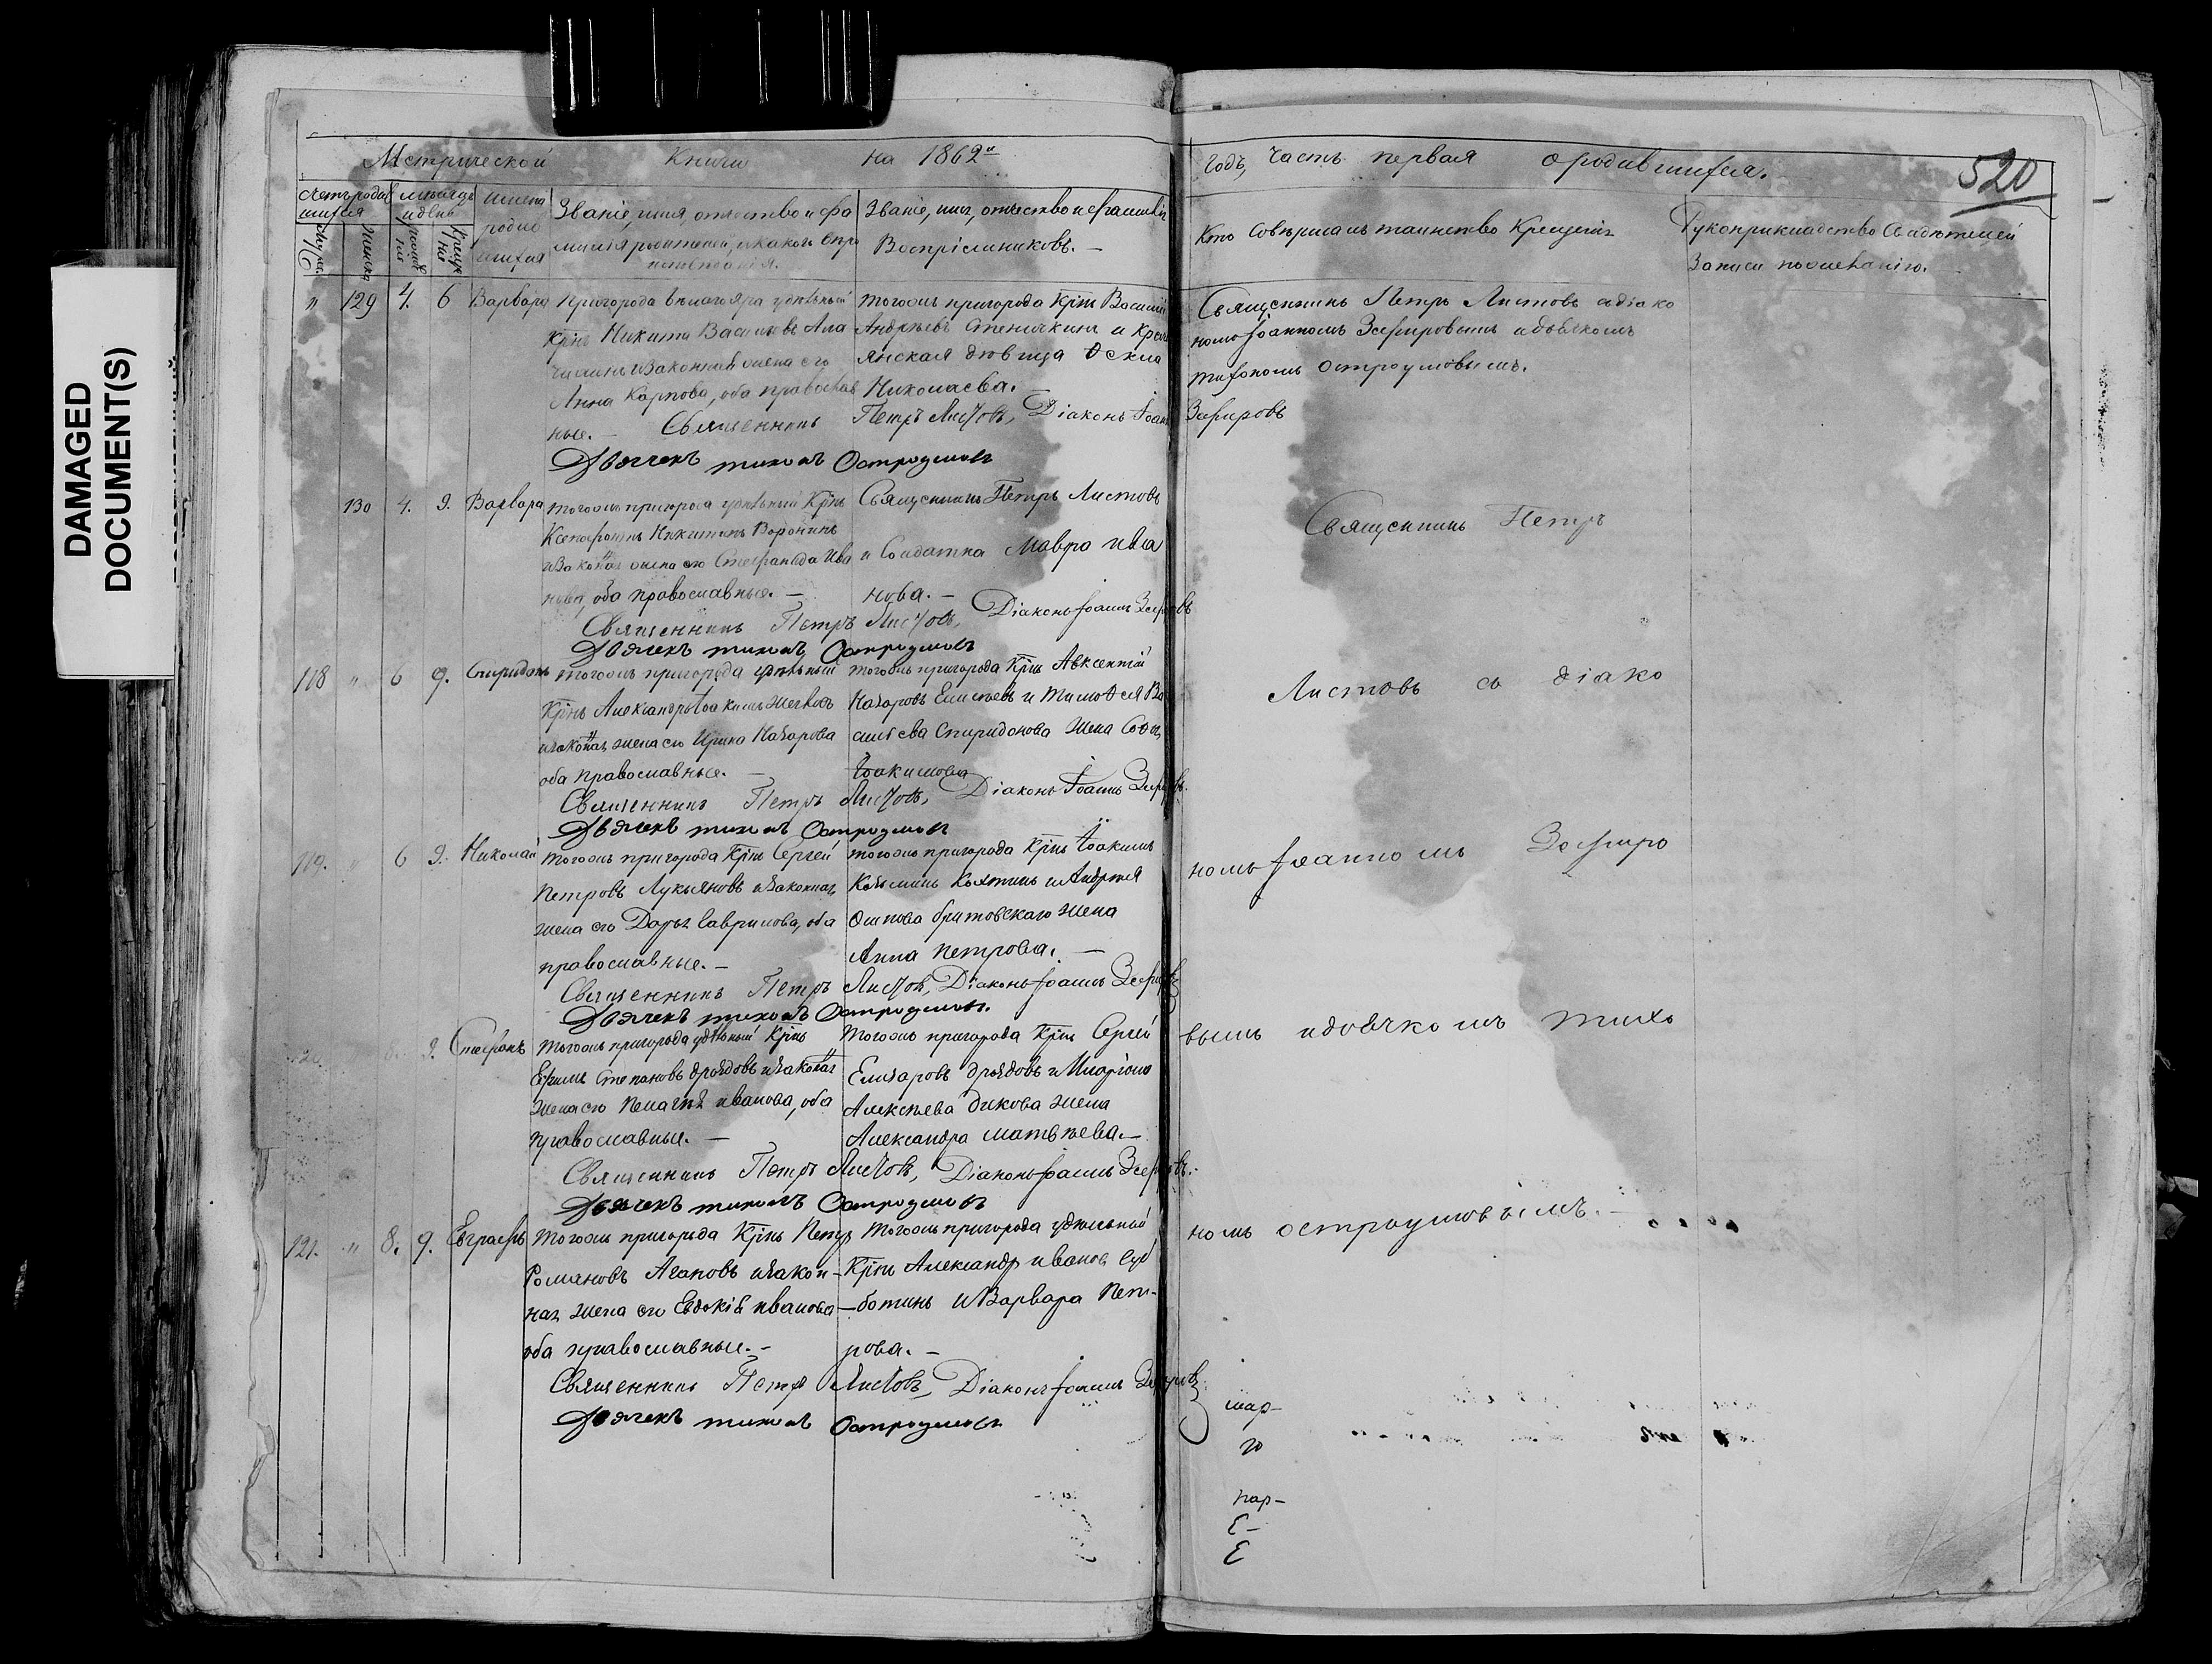 DAMAGED
DOCUMENT(S)
Метрической Книги на 1862й
годъ, Часть первая о родившихся.
520
Званіе, имя, отчество и фа
миліи родителей, и какого вѣро
исповѣданія.
Званіе, имя, отчество и фамилія
Воспріемниковъ. —
Кто Совершалъ таинство Крещенія
Рукоприкладство Свидѣтелей
Записи по желанію.
" 129 4. 6 Варвара
Пригорода Бѣлаго яра удѣльный
Крнъ Никита Васильевъ
и Законная жена его
Анна Карпова, оба православ
ные. —
тогожъ пригорода Крнъ Василий
Андреевъ Стеничкинъ и Крестъ
янская дѣвица Ѳекла
Николаева. —
Священникъ Петръ Листовъ, Діаконъ Іоаннъ Зефировъ
Дьячекъ тихонъ Остроумовъ
Священникъ Петръ Листовъ съ діако
номъ Іоанномъ Зефировымъ и дьячкомъ
тихономъ остроумовымъ.
130 4. 9. Варвара
тогожъ пригорода удѣльный Крнъ
Ксенофонтъ Никитинъ Воронинъ
и Законная жена его Стефанида Ива
нова, оба православные. —
Священникъ Петръ Листовъ
и Солдатка Мавра Ива
нова. —
Священникъ Петръ Листовъ, Діаконъ Іоаннъ Зефировъ
Дьячекъ тихонъ Остроумовъ
Священникъ Петръ
118 " 6 9. Спиридонъ
тогожъ пригорода удѣльный
Крнъ Александръ Іоакимъ
и законная жена его Ирина Назарова
оба православные. —
тогожъ пригорода Крнъ Авксентій
Назаровъ Елисѣевъ и Тимоѳея Ва
сильева Спиридонова жена Софья
Іоакимова
Священникъ Петръ Листовъ, Діаконъ Іоаннъ Зефировъ.
Дьячекъ тихонъ Остроумовъ
Листовъ съ діако
119. 6 9. Николай
тогожъ пригорода Крнъ Сергей
Петровъ Лукьяновъ и законная
жена его Дарья Гаврилова, оба
православные. —
тогожъ пригорода Крнъ Іоакимъ
Козьминъ и Андрея
Осипова жена
Анна Петрова. —
Священникъ Петръ Листовъ, Діаконъ Іоаннъ Зефировъ
Дьячекъ тихонъ Остроумовъ.
номъ Іоанномъ Зефиро
9. Стефанъ
тогожъ пригорода удѣльный Крнъ
Ефимъ Степановъ дроздовъ и законная
жена его Пелагея иванова, оба
православные. —
тогожъ пригорода Крнъ Сергей
Елизаровъ дроздовъ и Иларіона
Алексѣева дикова жена
Александра матвѣева. —
Священникъ Петръ Листовъ, Діаконъ Іоаннъ Зефировъ.
Дьячекъ тихонъ Остроумовъ
вымъ и дьячкомъ тихо
121. " 8. 9. Евграфъ
тогожъ пригорода Крнъ Петръ
Романовъ Агаповъ и закон-
ная жена его Евдокія иванова
оба православные. —
тогожъ пригорода удѣльной
Крнъ Александръ ивановъ Суб
ботинъ и Варвара Пет-
рова. —
Священникъ Петръ Листовъ, Діаконъ Іоаннъ Зефировъ
Дьячекъ тихонъ Остроумовъ
номъ остроумовымъ. —